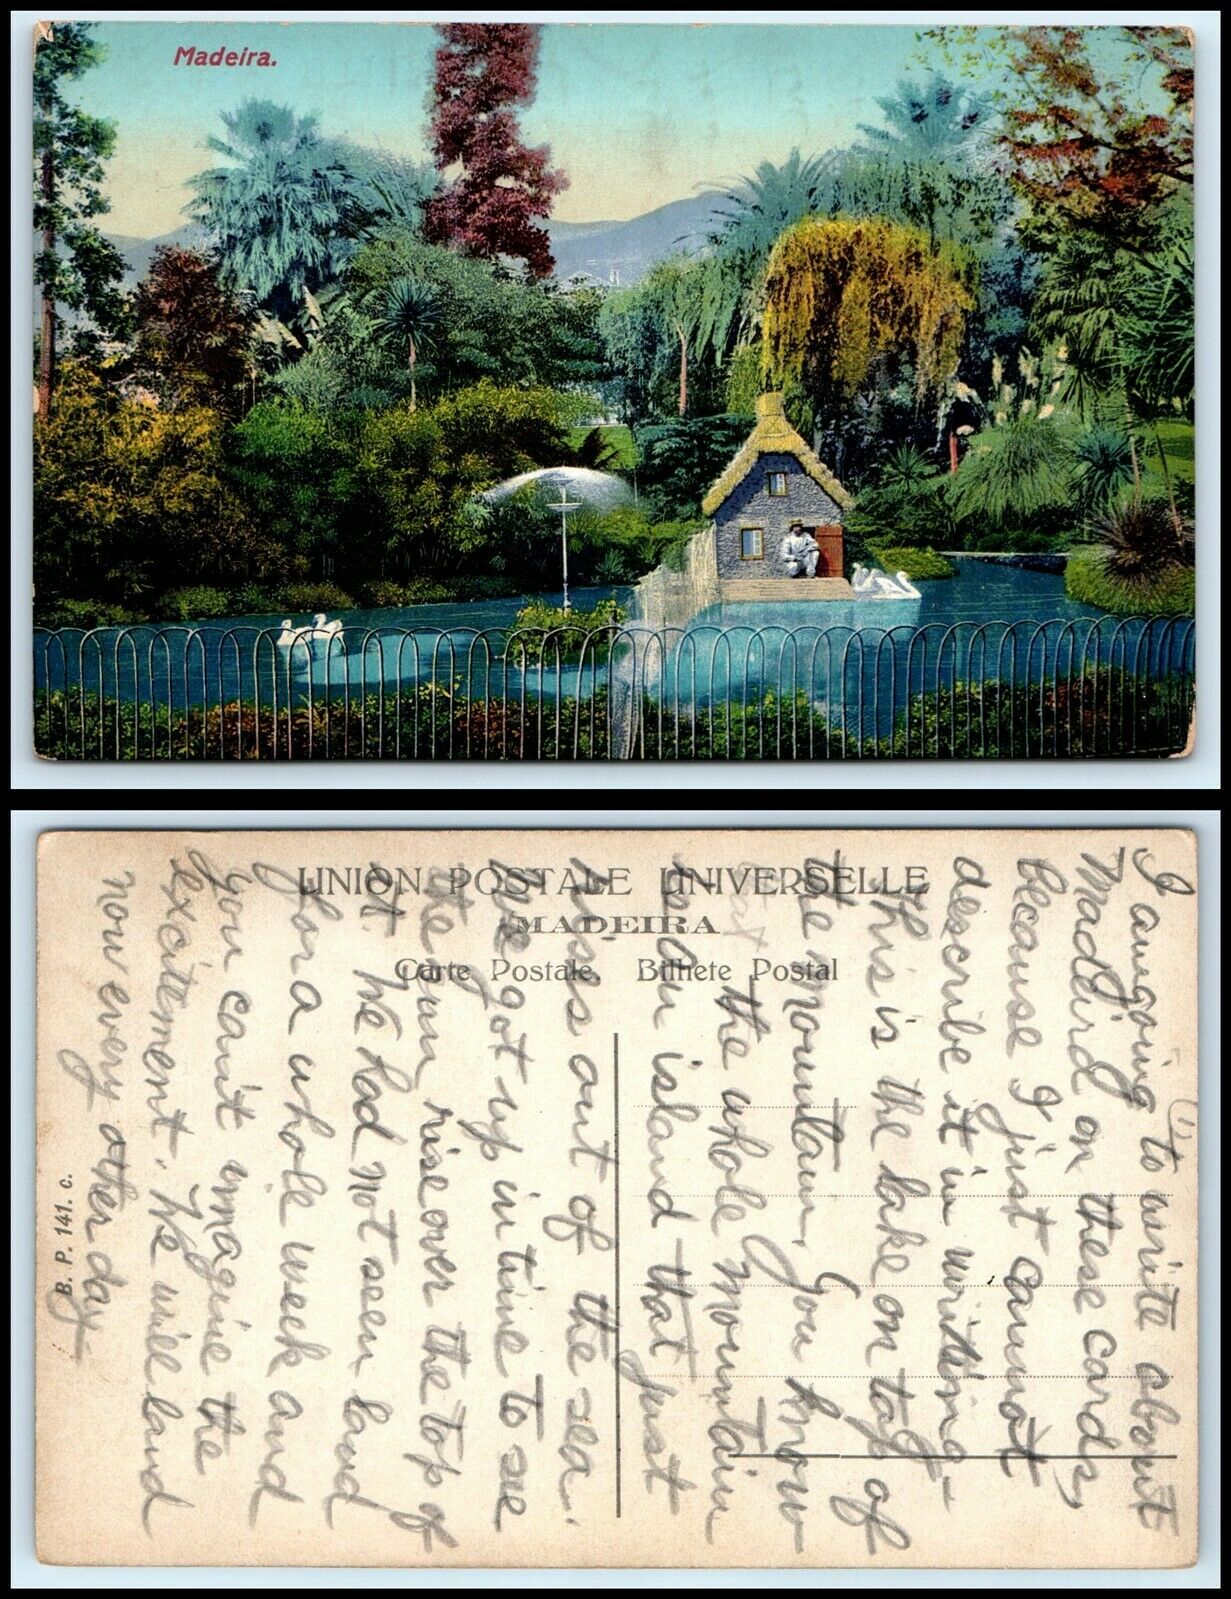 Madeira.
UNION POSTALE UNIVERSELLE
MADEIRA
Carte Postale. Bilhete Postal
B. P. 141. c.
I am going to write about
Madeira on these cards,
because I just cannot
describe it in writing-
This is the lake on top of
the mountain. You know
the whole mountain
is an island that just
rises out of the sea.
We got up in time to see
the sun rise over the top of
it. We had not seen land
for a whole week and
you can't imagine the
excitement. We will land
now every other day-